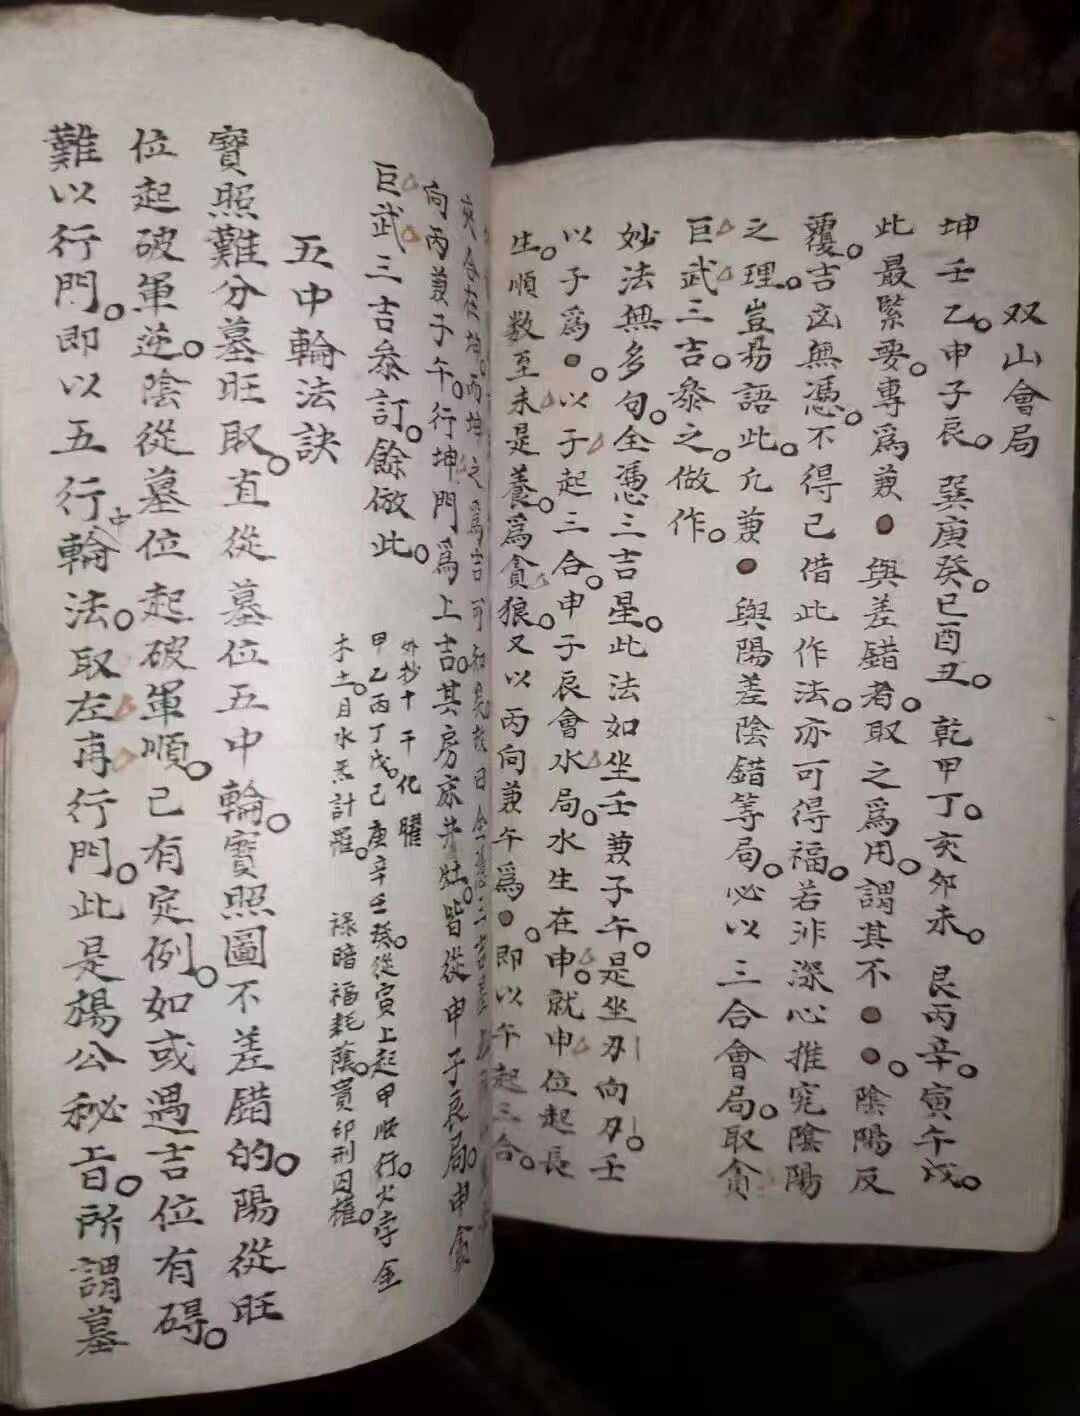 双山會局
坤壬乙。申子辰。巽庚癸。巳酉丑。乾甲丁。亥卯未。艮丙辛。寅午戌。
此最緊要。專為兼●與差錯者。取之為用。謂其不●●。陰陽反
覆。吉凶無憑。不得已借此作法。亦可得福。若非深心推究陰陽
之理。豈易語此。凢兼●與陽差陰錯等局。必以三合會局。取貪
巨武三吉。叅之。做作。
妙法無多句。全憑三吉星。此法如坐壬兼子午。是坐刃向刃。壬
以子為●。以子起三合。申子辰會水局。水生在申。就申位起長
生。順数至未是養。為貪狼。又以丙向兼午為●。即以午起三合。
亥合在坤。丙坤之為吉可知矣。故曰全憑三吉星
向丙兼子午。行坤門為上吉。其房床井灶。皆從申子辰局。申貪
巨武三吉叅訂。餘倣此。
外抄十干化曜
甲乙丙丁戊。己庚辛壬癸。從寅上起甲順行。火孛金
木土。月水炁計羅。祿暗福耗蔭。貴印刑囚權。
五中輪法訣
寶照難分墓旺取。直從墓位五中輪。寶照圖不差錯的。陽從旺
位起破軍逆。陰從墓位起破軍順。已有定例。如或遇吉位有碍。
難以行門。即以五行中輪法。取左再行門。此是楊公秘旨。所謂墓